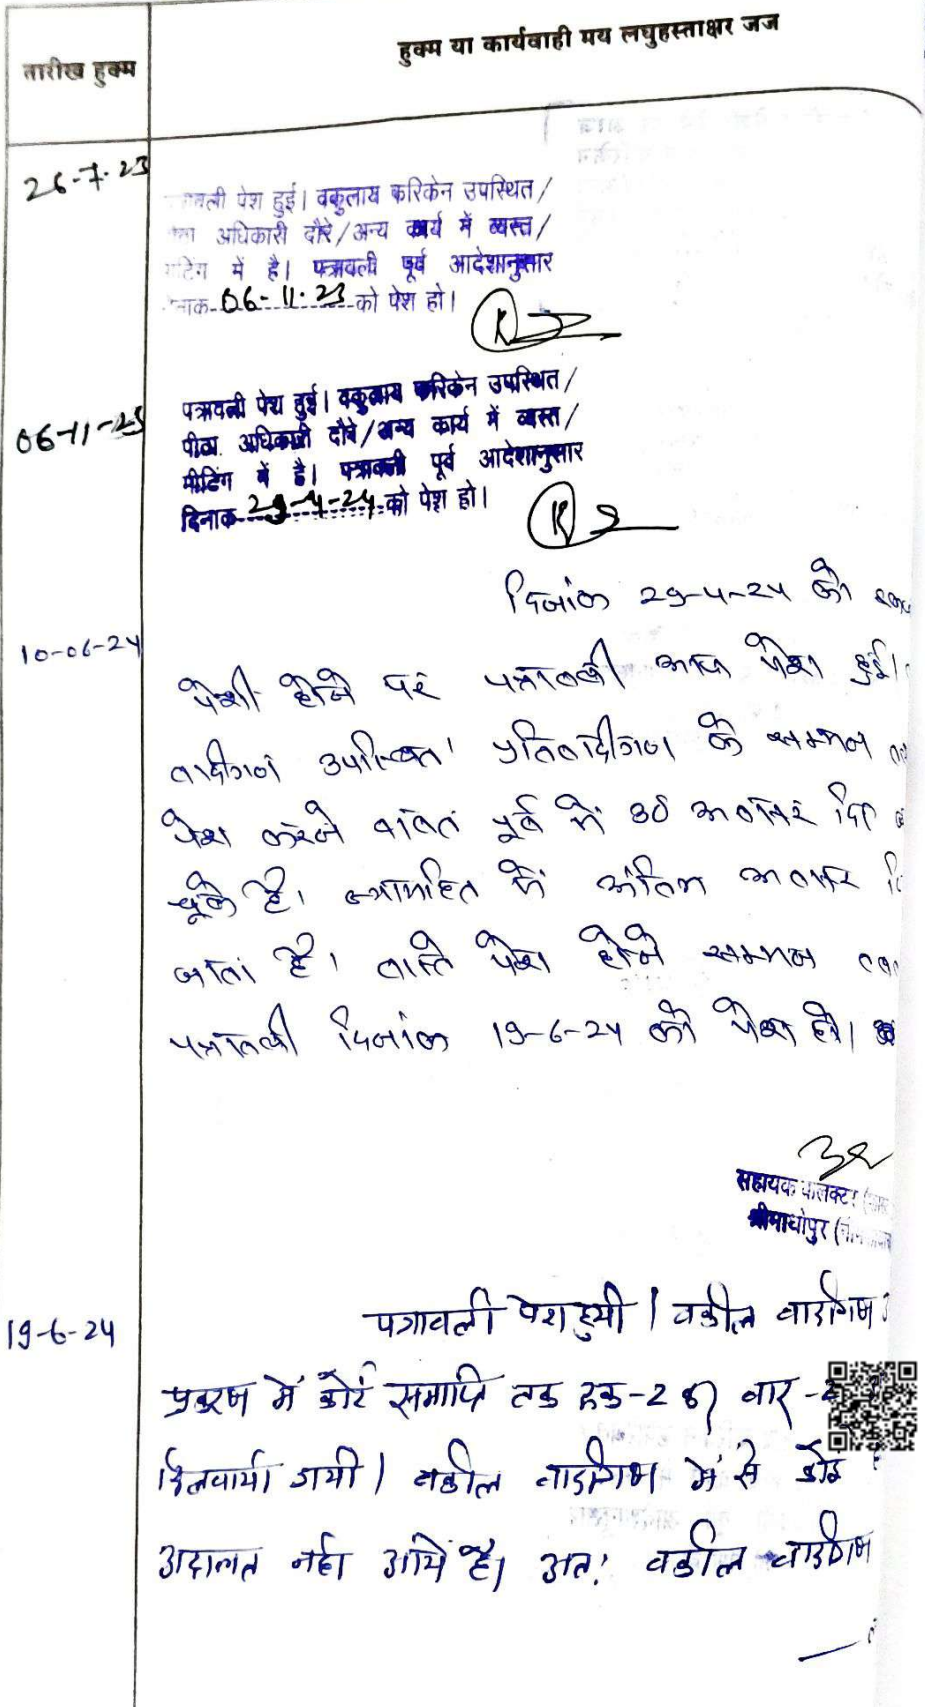 तारीख हुक्म
हुक्म या कार्यवाही मय लघुहस्ताक्षर जज
26-7-23
पेश हुई। वकुलाय फरिकेन उपस्थित/
अधिकारी दौरे/अन्य कार्य में व्यस्त/
में है। पत्रावली पूर्व आदेशानुसार
06-11-23 को पेश हो।
06-11-23
पत्रावली पेश हुई। वकुलाय फरिकेन उपस्थित/
पीठा. अधिकारी दौरे/अन्य कार्य में व्यस्त/
मीटिंग में है। पत्रावली पूर्व आदेशानुसार
दिनाक 29-4-24 को पेश हो।
10-06-24
दिनांक 29-4-24 को
पेशी होने पर पत्रावली आज पेश हुई।
वादीगण उपस्थित। प्रतिवादीगण के सम्मन
पेश करने बाबत पूर्व में कई अवसर दिए
चूके है। न्यायहित में अंतिम अवसर
जाता है। वास्ते पेश होने सम्मन
पत्रावली दिनांक 19-6-24 को पेश हो।
सहायक कलक्टर
श्रीमाधोपुर
19-6-24
पत्रावली पेश हुयी। वकील वादीगण
प्रकरण में कोर्ट समाप्ति तक रुक-2 कर बार-
दिलवायी गयी। वकील वादीगण में से कोई
अदालत नहीं आये है। अतः वकील वादीगण